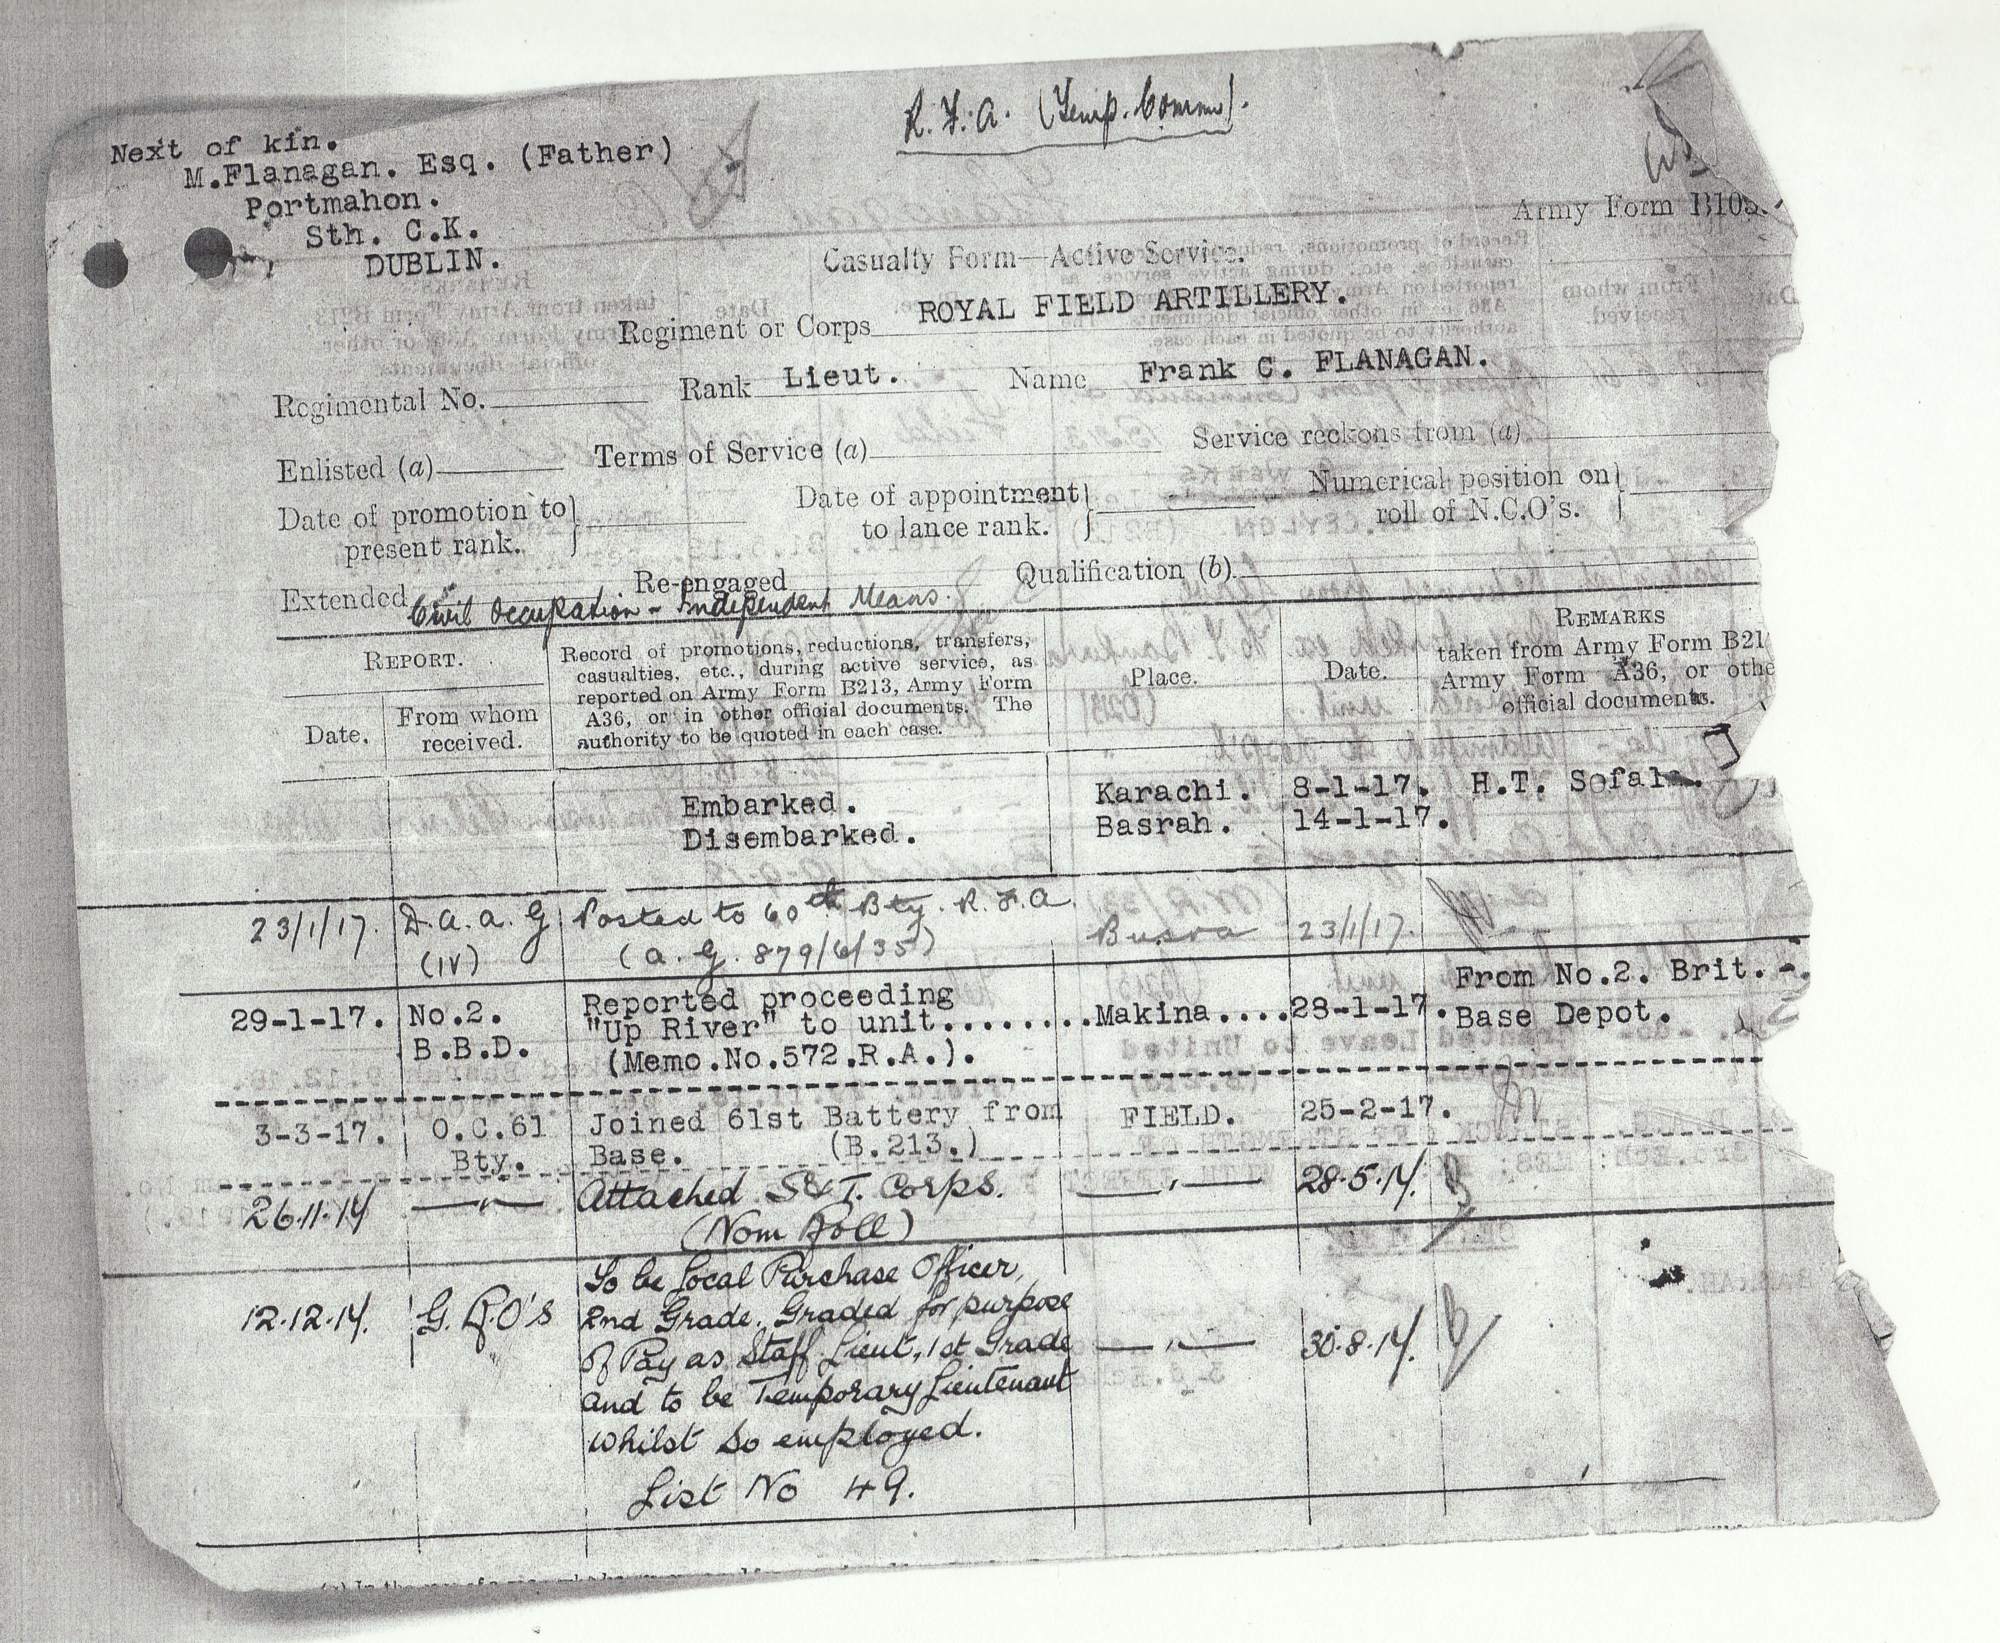 R.F.A. (Temp. Comm).
Next of kin.
M.Flanagan. Esq. (Father)
Portmahon.
Sth. C.K.
DUBLIN.
Army Form B103.
Casualty Form—Active Service.
Regiment or Corps ROYAL FIELD ARTILLERY.
Regimental No. Rank Lieut. Name Frank C. FLANAGAN.
Enlisted (a) Terms of Service (a) Service reckons from (a)
Date of promotion to present rank. } Date of appointment to lance rank. } Numerical position on roll of N.C.O's. }
Extended Re-engaged Qualification (b)
Civil Occupation - Independent Means.
REPORT.
Date. From whom received.
Record of promotions, reductions, transfers,
casualties, etc., during active service, as
reported on Army Form B213, Army Form
A36, or in other official documents. The
authority to be quoted in each case.
Place.
Date.
REMARKS
taken from Army Form B21
Army Form A36, or othe
official documents.
Embarked. Karachi. 8-1-17. H.T. Sofala.
Disembarked. Basrah. 14-1-17.
23/1/17. D.A.A.G (IV) Posted to 60th Bty. R.F.A Busra 23/1/17.
(A.G. 879/6/35)
29-1-17. No.2. Reported proceeding From No.2. Brit.-.
B.B.D. "Up River" to unit........Makina....28-1-17. Base Depot.
(Memo.No.572.R.A.).
3-3-17. O.C.61 Joined 61st Battery from FIELD. 25-2-17.
Bty. Base. (B.213.)
26.11.17 —"— Attached S&T. Corps. —"— 28.5.17.
(Nom Roll)
12.12.17. G.R.O's To be Local Purchase Officer,
2nd Grade. Graded for purpose
of Pay as Staff Lieut, 1st Grade —"— 30.8.17.
and to be Temporary Lieutenant
whilst so employed.
List No 49.